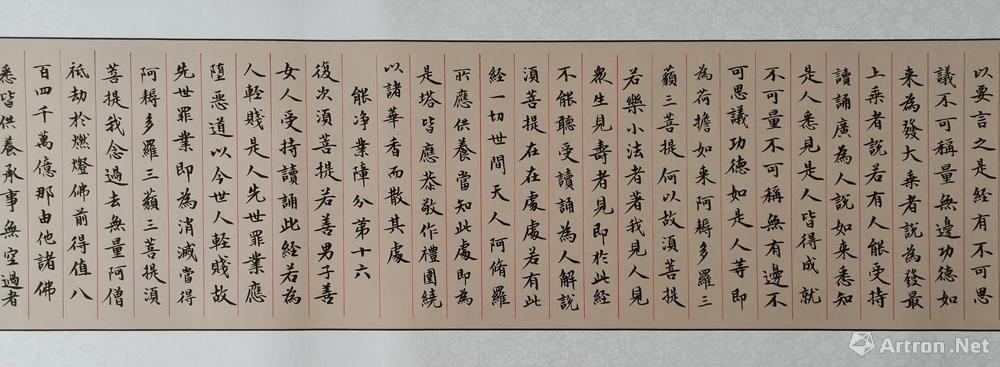 以要言之是経有不可思
議不可称量無邊功德如
来為發大乘者說為發最
上乘者說若有人能受持
讀誦廣為人說如来悉知
是人悉見是人皆得成就
不可量不可稱無有邊不
可思議功德如是人等即
為荷擔如来阿耨多羅三
藐三菩提何以故須菩提
若樂小法者著我見人見
衆生見壽者見即於此経
不能聽受讀誦為人解說
須菩提在在處處若有此
経一切世間天人阿脩羅
所應供養當知此處即為
是塔皆應恭敬作禮圍繞
以諸華香而散其處
能净業障分第十六
復次須菩提若善男子善
女人受持讀誦此経若為
人輕賤是人先世罪業應
墮惡道以今世人輕賤故
先世罪業即為消滅當得
阿耨多羅三藐三菩提須
菩提我念過去無量阿僧
祗劫於燃燈佛前得值八
百四千萬億那由他諸佛
悉皆供養承事無空過者
Artron.Net